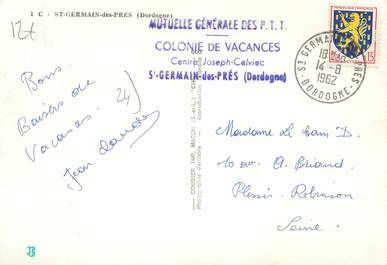 1 C - ST-GERMAIN-des-PRÉS (Dordogne)
12€
MUTUELLE GÉNÉRALE DES P.T.T.
COLONIE DE VACANCES
Centre Joseph-Calviac
St-GERMAIN-des-PRÉS (Dordogne)
ST GERMAIN DES PRES
18H
14-8
1962
DORDOGNE
RÉPUBLIQUE FRANÇAISE
Bons
Baisers de
Vacances.
24
COMBIER IMP. MACON (S.-et-L.)
Photographie Véritable - Reproduction
Madame Le D.
10 av. A. Briand
Plessis-Robinson
Seine.